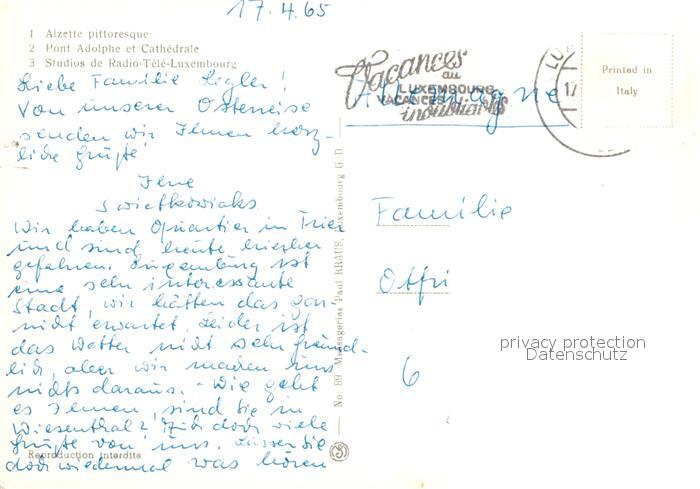 17.4.65
1 Alzette pittoresque
2 Pont Adolphe et Cathédrale
3 Studios de Radio-Télé-Luxembourg
Liebe Familie Legler!
Von unserer Osterreise
senden wir Ihnen herz-
liche Grüße
Ihre
Swietkowiaks
Wir haben Quartier in Trier
und sind heute hierher
gefahren. Luxemburg ist
eine sehr interessante
Stadt, wir hätten das gar-
nicht erwartet. Leider ist
das Wetter nicht sehr freund-
lich, aber wir machen uns
nichts daraus. - Wie geht
es Ihnen, sind Sie in
Wiesenthal? Ihnen doch viele
Grüße von uns. Lassen Sie
doch wiedermal was hören
Reproduction interdite
No. 99 Messageries Paul KRAUS, Luxembourg G.D.
Vacances
au
LUXEMBOURG
VACANCES
inoubliables
Allemagne
LU
17
Printed in
Italy
Familie
Otfri
6
privacy protection
Datenschutz